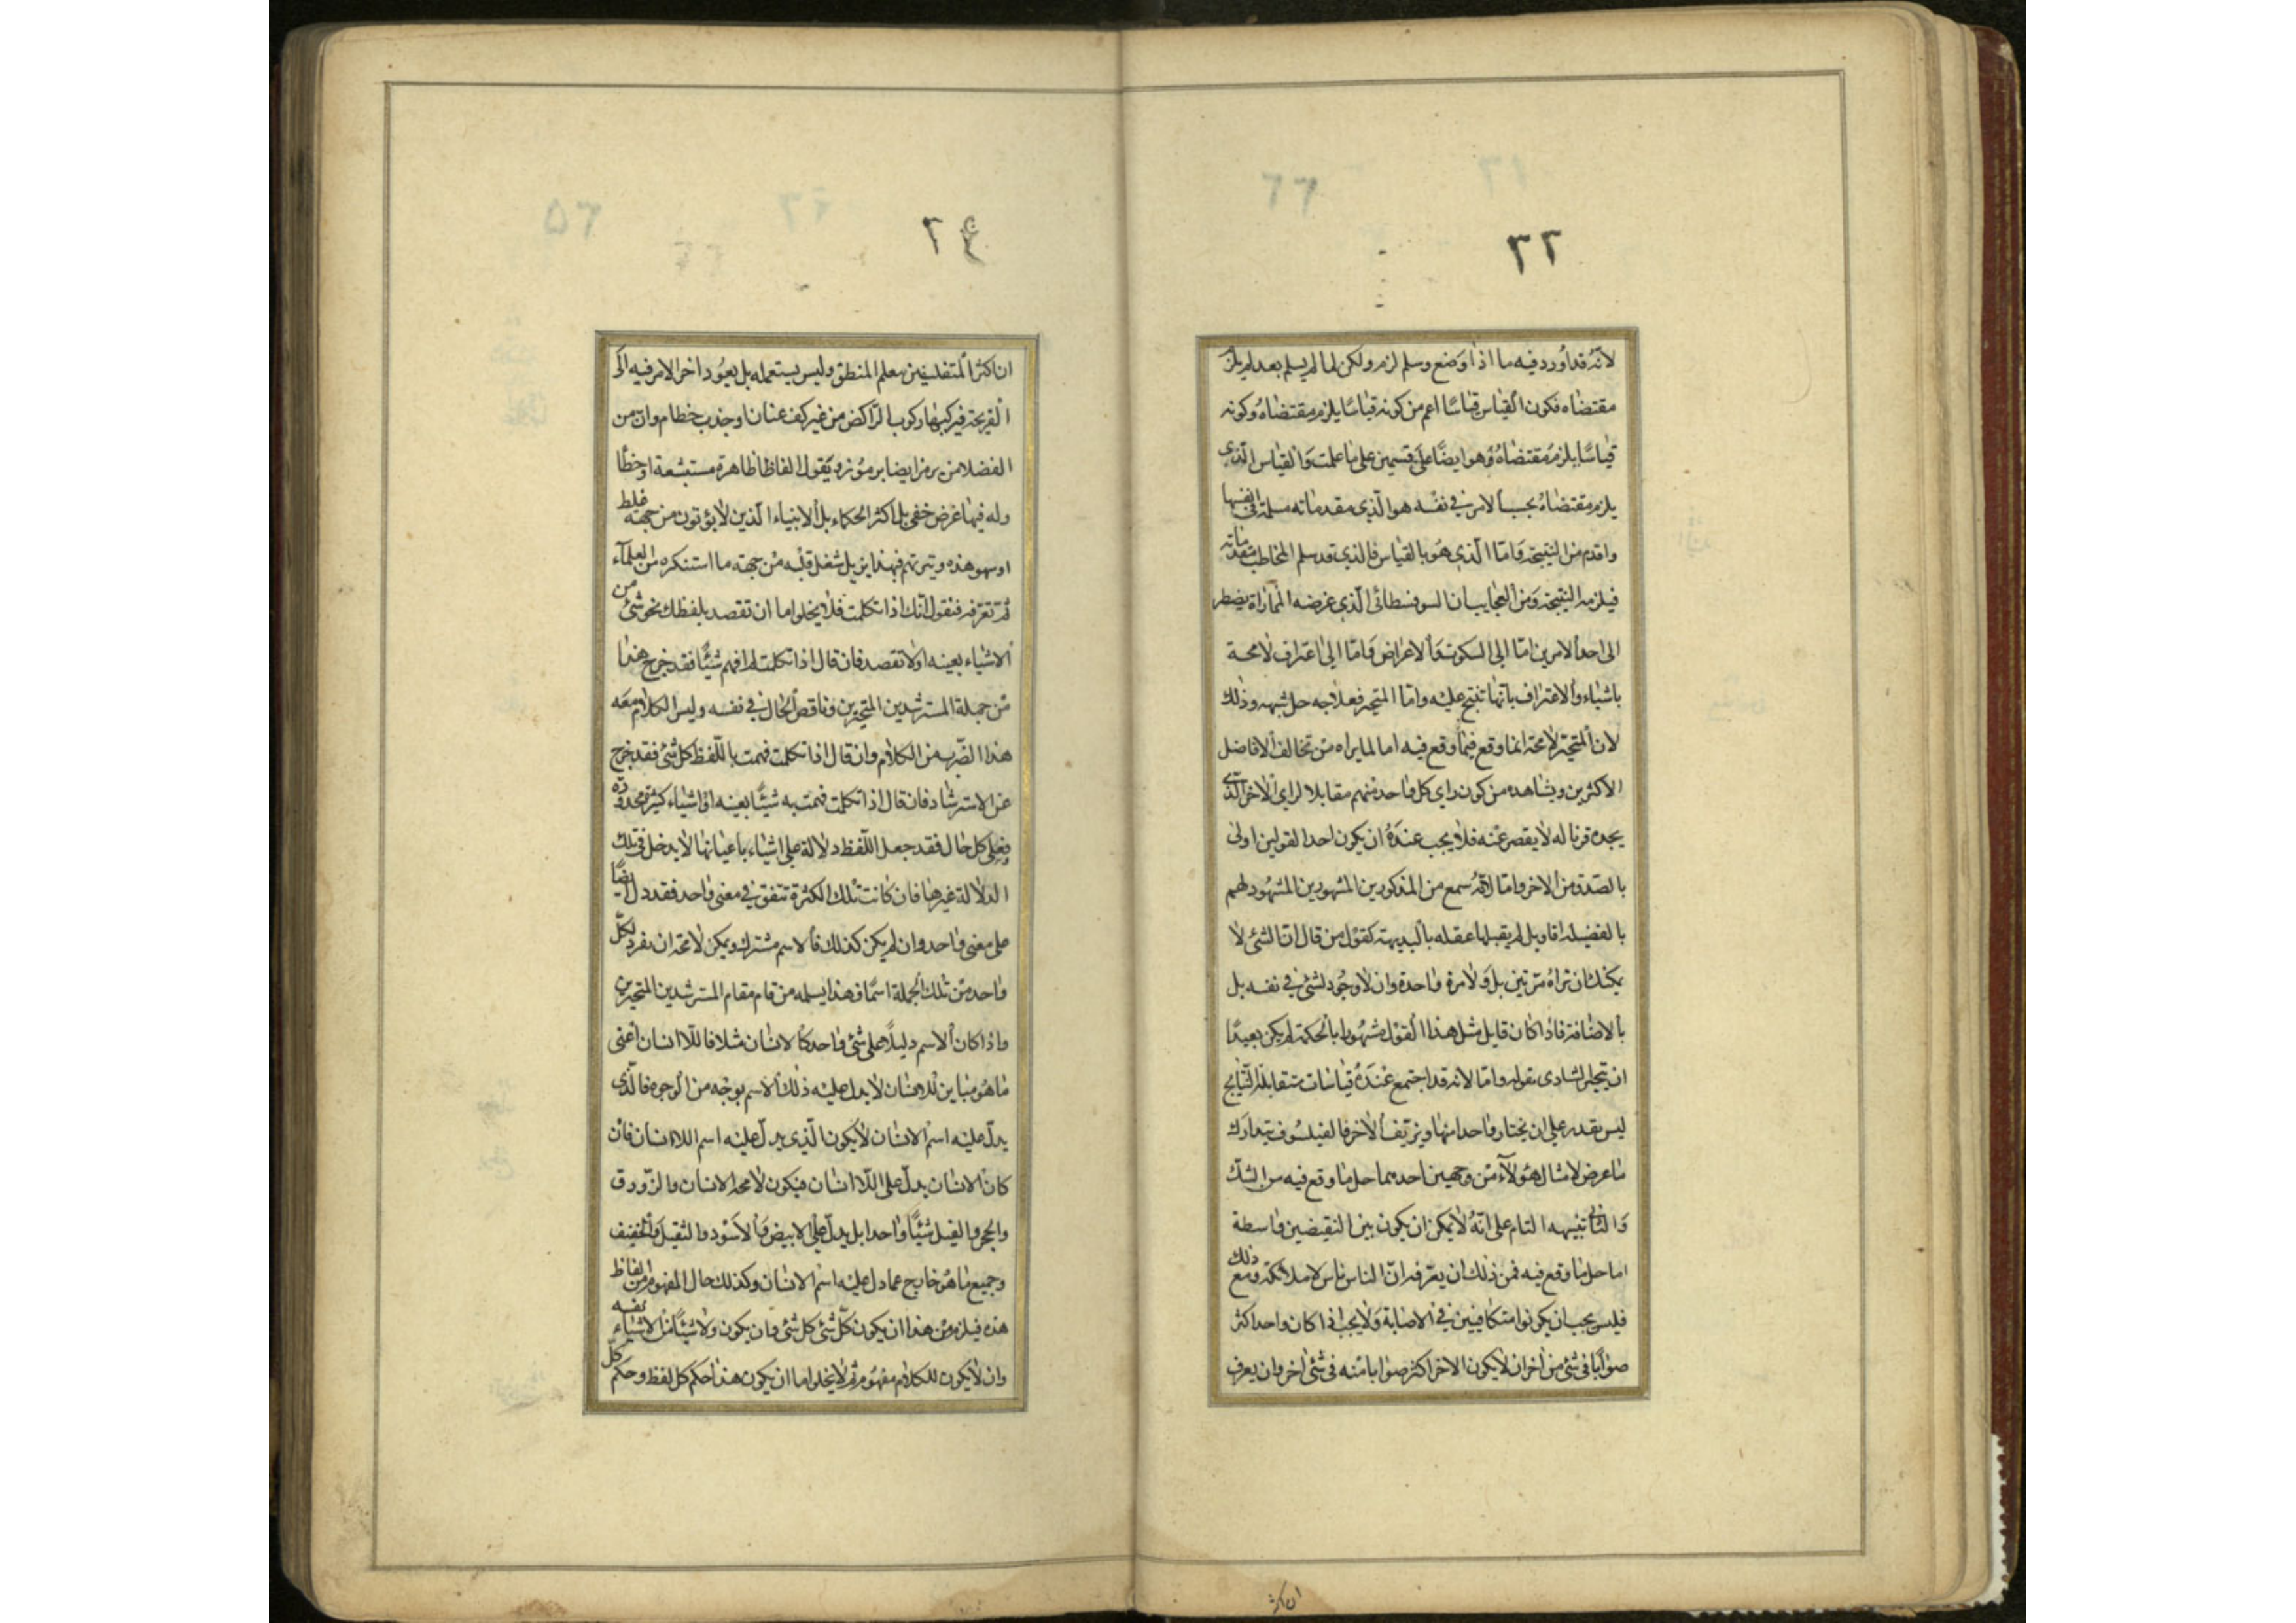 ٣٢
لانّه قد اُورد فيه ما اذا وضع وسلم لزم ولكن لما لم يسلم بعد لم يلزم
مقتضاه فكون القياس قياسًا اعم من كونه قياسًا يلزم مقتضاهُ وكونه
قياسًا يلزم مقتضاهُ وُهو ايضًا علىَ قسمين على ما علمت وَالقياس الّذى
يلزم مقتضاهُ بحسب الامر في نفسه هو الّذى مقدماته مسلمة فى انفسها
واقدم من النتيجة وَامّا الّذى هُو بالقياس فالذى قد سلم المخاطب مقدماته
فيلزمه النتيجة وَمن العجايب ان السوفسطائى الّذى غرضه المماراة يضطر
الى احد الامرين امّا الى السكوت وَالاعراض وَامّا الى اعتراف لا محة
باشياء والاعتراف بانها تنتج عليه وامّا المتحير فعلاجه حل شبهه وذلك
لان المتحيّر لا محة انما وقع فيما وقع فيه اما لما يراه من تخالف الافاضل
الاكثرين ويشاهده من كون راى كل واحد منهم مقابلا لراى الاخر الّذى
يجده قرنا له لا يقصر عنه فلا يجب عندَهُ ان يكون احد القولين اولى
بالصّدق من الاخر وامّا لانّهُ سمع من المذكورين المشهورين المشهود لهم
بالفضيلة اقاويل لم يقبلها عقله بالبديهة كقول من قال ان الشئ لا
يمكنك ان تراهُ مرّتين بل وَلا مرة واحدة وان لا وجُود لشئ في نفسه بل
بالاضافة فاذا كان قايل مثل هذا القوْل مشهُورا بالحكمة لم يكن بعيدًا
ان يتحير الشادى بقوله وامّا لانه قد اجتمع عندَهُ قياسات متقابلة النتايج
ليس يقدر على ان يختار واحدا منها ويزيّف الاخر فالفيلسُوف يتدارك
ما عرض لامثال هؤلآء من وجهين احدهما حل ما وقع فيه من الشكّ
وَالثانى تنبيهه التام على انّهُ لا يمكن ان يكون بين النقيضين واسطة
اما حل ما وقع فيه فمن ذلك ان يعرّفه انّ الناس ناس لا ملائكة ومع ذلك
فليس يجب ان يكونوا متكافيين في الاصابة وَلا يجب اذا كان واحد اكثر
صوابًا فى شئ من اخر ان لا يكون الاخر اكثر صوابا منه فى شئ اخر وان يعرف
ان اكثر المتفلسفين يتعلم المنطق وليس يستعمله بل يعوُد اخر الامر فيه الى
القريحة فيركبها ركوب الرّاكض من غير كف عنان او جذب خطام وانّ من
الفضلا من يرمز ايضا برموُز ويَقول الفاظا ظاهرة مستبشعة او خطأ
وله فيها غرض خفى بل اكثر الحكماء بل الانبياء الّذين لا يؤتون من جهة غلط
او سهو هذه وتيرتهم فبهذا يزيل شغل قلبه من جهة ما استنكره من العلمآء
ثم تعرّفه فنقول انّك اذا تكلمت فلا يخلو اما ان تقصد بلفظك نحو شئ من
الاشياء بعينه او لا تقصد فان قال اذا تكلمت لم افهم شيئًا فقد خرج هذا
من جملة المسترشدين المتحيرين وناقض الحال في نفسه وليس الكلام معَه
هذا الضّرب من الكلام وان قال اذا تكلمت فهمت باللّفظ كل شئ فقد خرج
عن الاسترشاد فان قال اذا تكلمت فهمت به شيئًا بعينه او اشياء كثيرة محدودة
فعلى كل حال فقد جعل اللّفظ دلالة على اشياء باعيانها لا يدخل فى تلك
الدلالة غيرها فان كانت تلك الكثرة تتفق في معنى واحد فقد دل ايضًا
على معنى واحد وان لم يكن كذلك فالاسم مشترك ويمكن لا محة ان يفرد لكلّ
واحد من تلك الجملة اسمًا فهذا يسلمه من قام مقام المسترشدين المتحيرين
واذا كان الاسم دليلاً على شئ واحد كالانسان مثلا فاللّا انسان اعنى
ما هُو مباين للانسان لا يدل عليه ذلك الاسم بوجْه من الوجوه فالّذى
يدلّ عليه اسم الانسان لا يكون الّذى يدلّ عليْه اسم اللاانسان فان
كان الانسان يدلّ على اللّا انسان فيكون لا محة الانسان والزّورق
والحجر والفيل شيئًا واحدا بل يدلّ على الابيض وَالاسْود والثقيل وَالخفيف
وجميع ما هُو خارج عما دل عليْه اسم الانسان وكذلك حال المفهوم من الفاظ
هذه فيلزم من هذا ان يكون كلّ شئ كل شئ وان يكون ولا شيئًا من الاشياء نفسه
وان لا يكون للكلام مفهُوم ثم لا يخلو اما ان يكون هذا حكم كل لفظ وحكم كلّ
ان اكثر